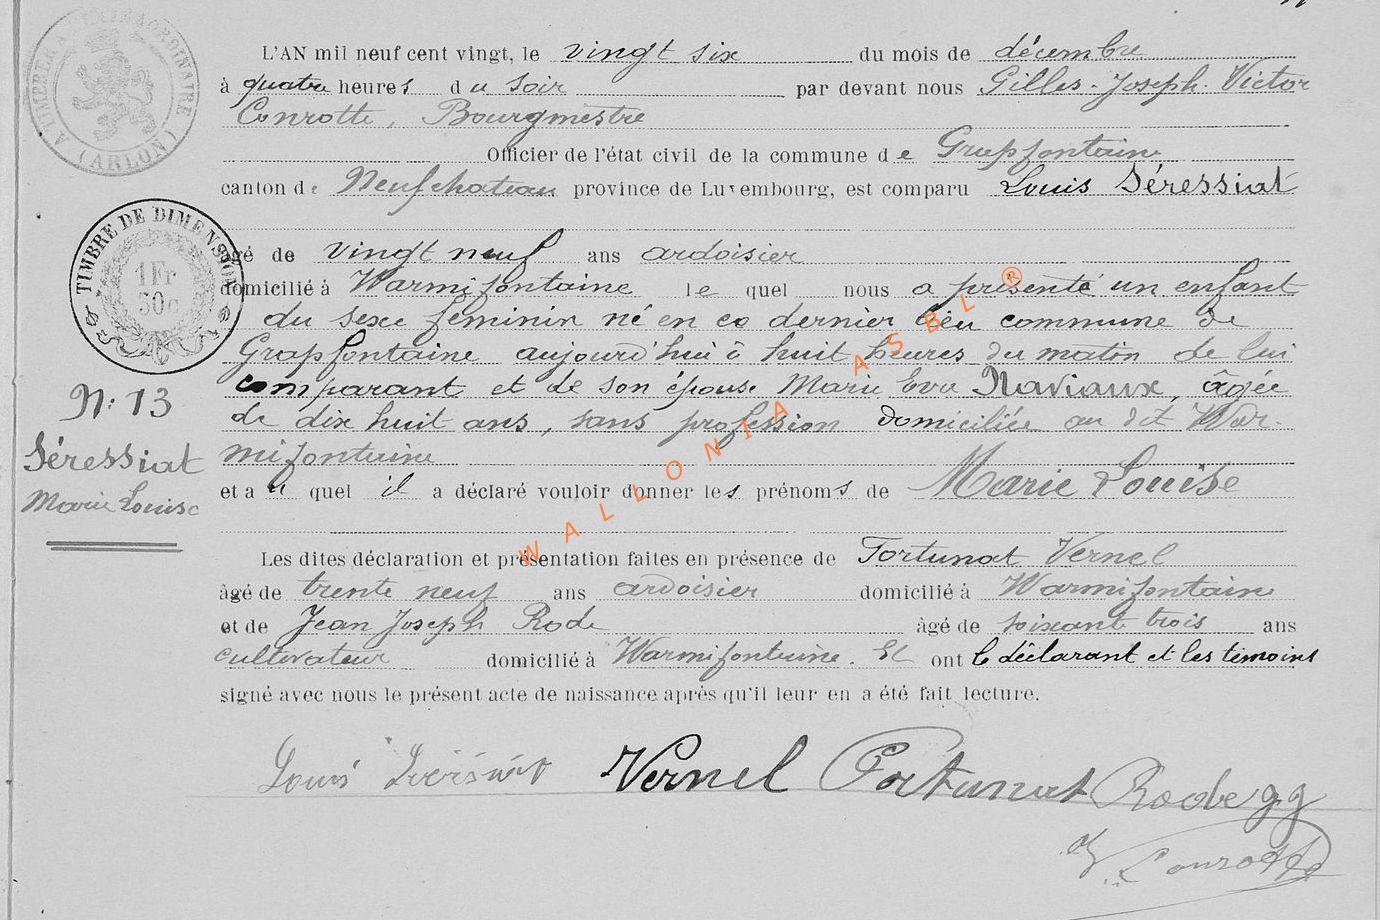 A TIMBRER A L'EXTRAORDINAIRE
(ARLON)
L'AN mil neuf cent vingt, le vingt six du mois de décembre
à quatre heures du soir par devant nous Gilles-Joseph-Victor
Conrotte, Bourgmestre
Officier de l'état civil de la commune de Grapfontaine
canton de Neufchateau province de Luxembourg, est comparu Louis Séressiat
âgé de vingt neuf ans ardoisier
domicilié à Warmifontaine le quel nous a présenté un enfant
du sexe feminin né en ce dernier lieu commune de
Grapfontaine aujourd'hui à huit heures du matin de lui
comparant et de son épouse Marie Eva Naviaux, âgée
de dix huit ans, sans profession domiciliée au dit War-
mifontaine
et au quel il a déclaré vouloir donner les prénoms de Marie Louise
Les dites déclaration et présentation faites en présence de Fortunat Vernel
âgé de trente neuf ans ardoisier domicilié à Warmifontaine
et de Jean Joseph Rode âgé de soixante trois ans
cultivateur domicilié à Warmifontaine. Et ont le déclarant et les témoins
signé avec nous le présent acte de naissance après qu'il leur en a été fait lecture.
TIMBRE DE DIMENSION
1Fr
50c
N: 13
Séressiat
Marie Louise
WALLONIA ASBL ®
Louis Vernel Fortunat Rode
Conrotte